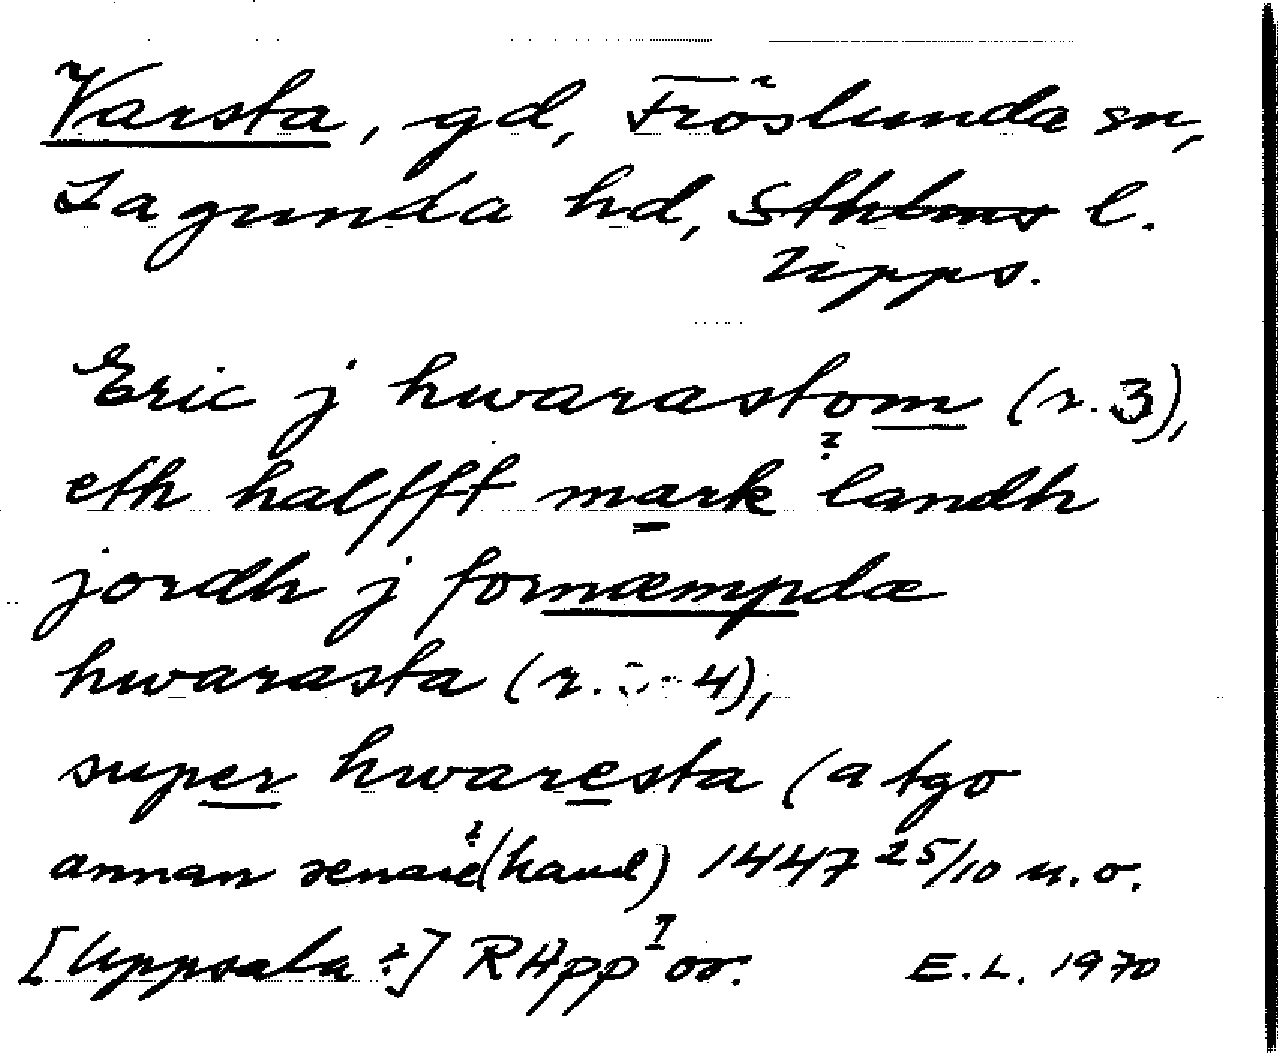 Varsta, gd, Fröslunda sn,
Lagunda hd, Sthlms l.
Upps.
Eric j hwarastom (r. 3),
eth halfft mark landh
jordh j fornæmpdæ
hwarasta (r. 4),
super hwaresta (a tgo
annan senare (hand) 1447 25/10 u. o.
[Uppsala ?] RApp or. E.L. 1970